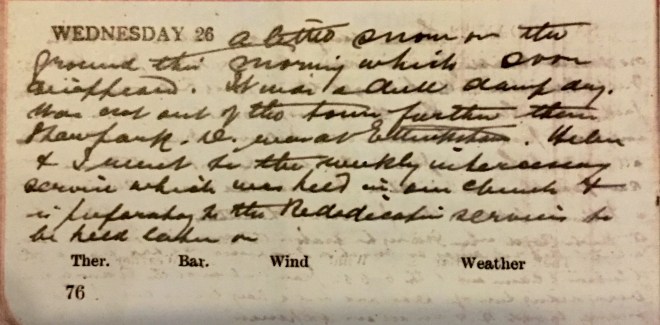 WEDNESDAY 26 a little snow on the
ground this morning which soon
disappeared. It was a dull damp day.
Was not out of the town further than
Shawpark. D. was at Ettrickshaws. Helen
& I went to the weekly intercessory
service which was held in our church &
is preparatory to the Rededication services to
be held later on
Ther. Bar. Wind Weather
76